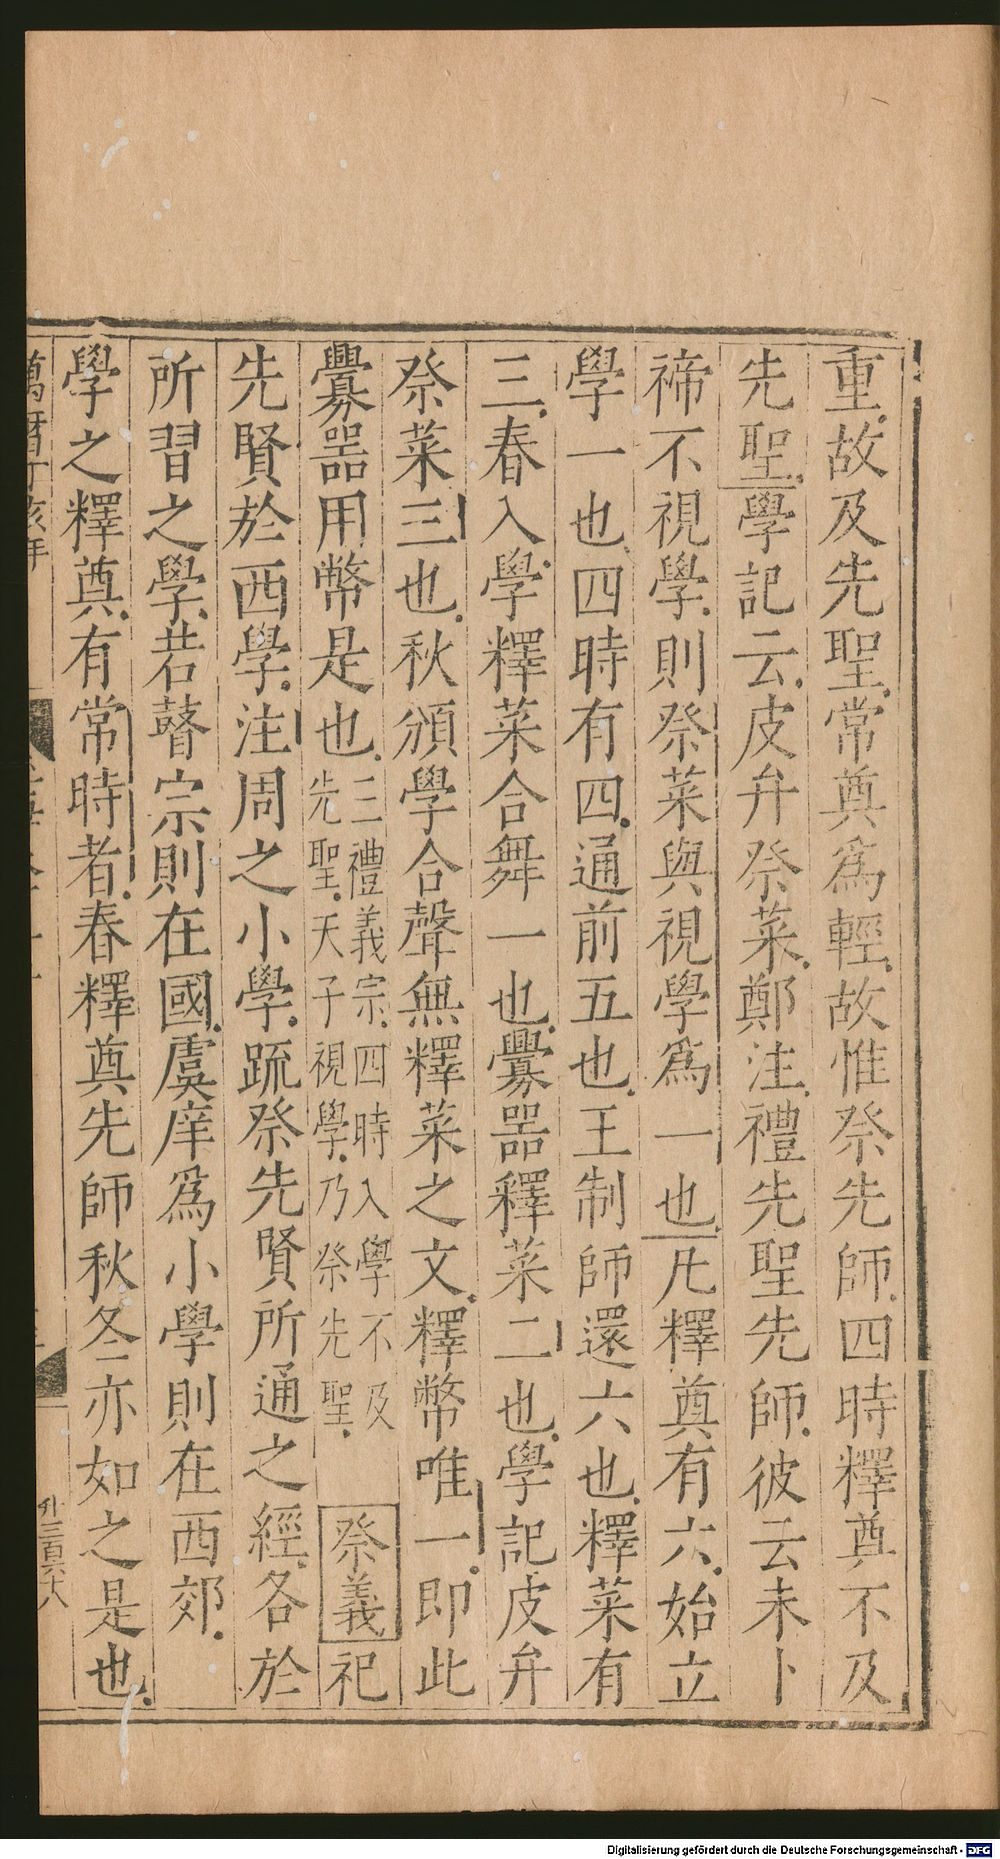 重故及先聖常奠為輕故惟祭先師四時釋奠不及
先聖學記云皮弁祭菜鄭注禮先聖先師彼云未卜
禘不視學則祭菜與視學為一也凡釋奠有六始立
學一也四時有四通前五也王制師還六也釋菜有
三春入學釋菜合舞一也釁器釋菜二也學記皮弁
祭菜三也秋頒學合聲無釋菜之文釋幣唯一即此
釁器用幣是也三禮義宗四時入學不及先聖天子視學乃祭先聖祭義祀
先賢於西學注周之小學疏祭先賢所通之經各於
所習之學若瞽宗則在國虞庠為小學則在西郊
學之釋奠有常時者春釋奠先師秋冬亦如之是也
萬曆丁亥年
Digitalisierung gefördert durch die Deutsche Forschungsgemeinschaft - DFG